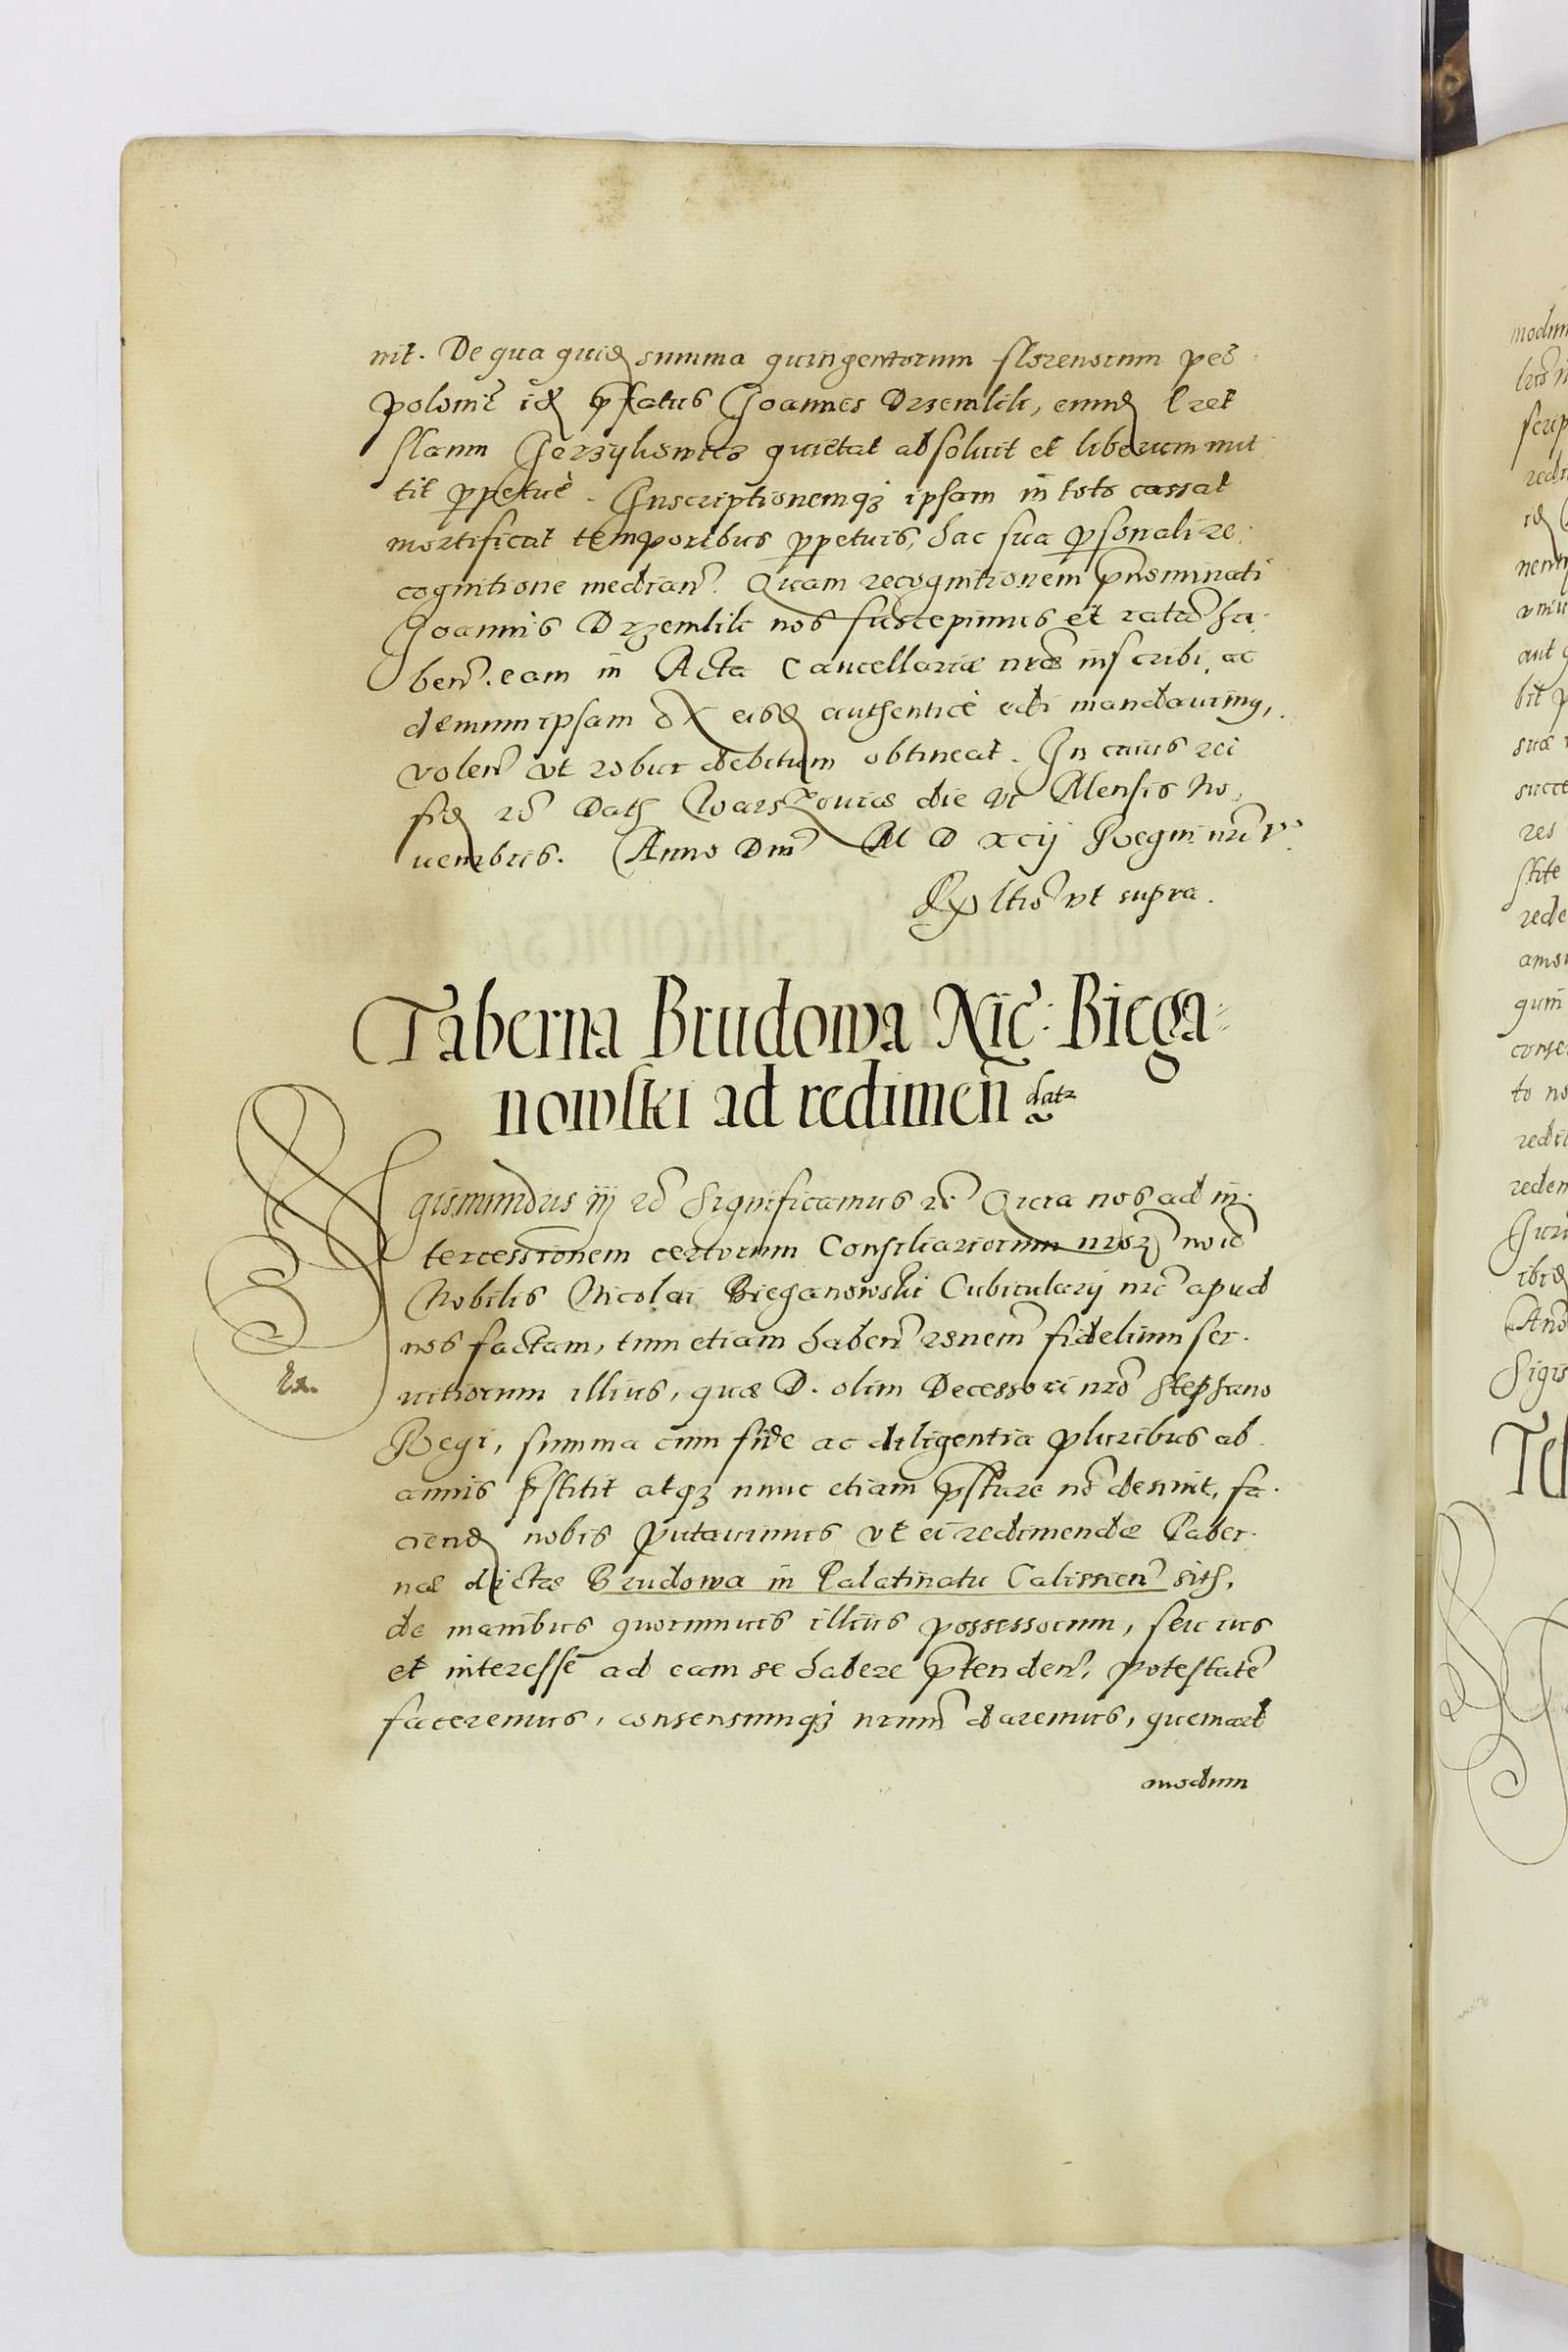 nit. De qua quid summa quingentorum florenorum pec
polonic̃ id p̃fatus Joannes Drzemlik, eund Pret
slaum Jerzykowicz quietat absoluit et liberum mit
tit ppetuè. Inscriptionemqȝ ipsam in toto cassat
mortificat temporibus ppetuis, hac sua psonali re
cognitione median̄. Quam recognitionem p̃nominati
Joannis Drzemlik nos suscepimus et ratã ha
ben̄. eam in Acta Cancellariæ nr̃æ inscribi, ac
demum ipsam ex eisd authenticè edi mandauimꝰ,
volen̄ vt robur debitum obtineat. In cuius rei
fid rc̃ Dath Warszouiæ die VI Mensis No,
uembris. Anno Dnī M D XCij Regni nr̃i V.
Rltio vt supra.
Taberna Brudowa Nic̃: Biega=
nowski ad redimen̄ datr
gismundus iij rc̃ Significamus rc̃ Quia nos ad in
tercessionem certorum Consiliariorum nr̃orꝝ noīe
Nobilis Nicolai Bieganowski Cubicularij nr̃i apud
nos factam, tum etiam haben̄ rõnem̃ fidelium ser.
uitiorum illius, quæ D. olim Decessori nr̃o Stephano
Regi, summa cum fide ac diligentia pluribus ab
annis p̃stitit atqȝ nunc etiam p̃stare nõ desinit, fa.
ciend nobis putauimus vt ei redimendæ Taber
næ dictæ Brudowa in Palatinatu Calissien̄ sith,
de manibus quorumuis illius possessorum, seu ius
et interesse ad eam se habere p̃tenden̄, potestatē
faceremus, consensumqȝ nr̃um daremus, quemad
modum